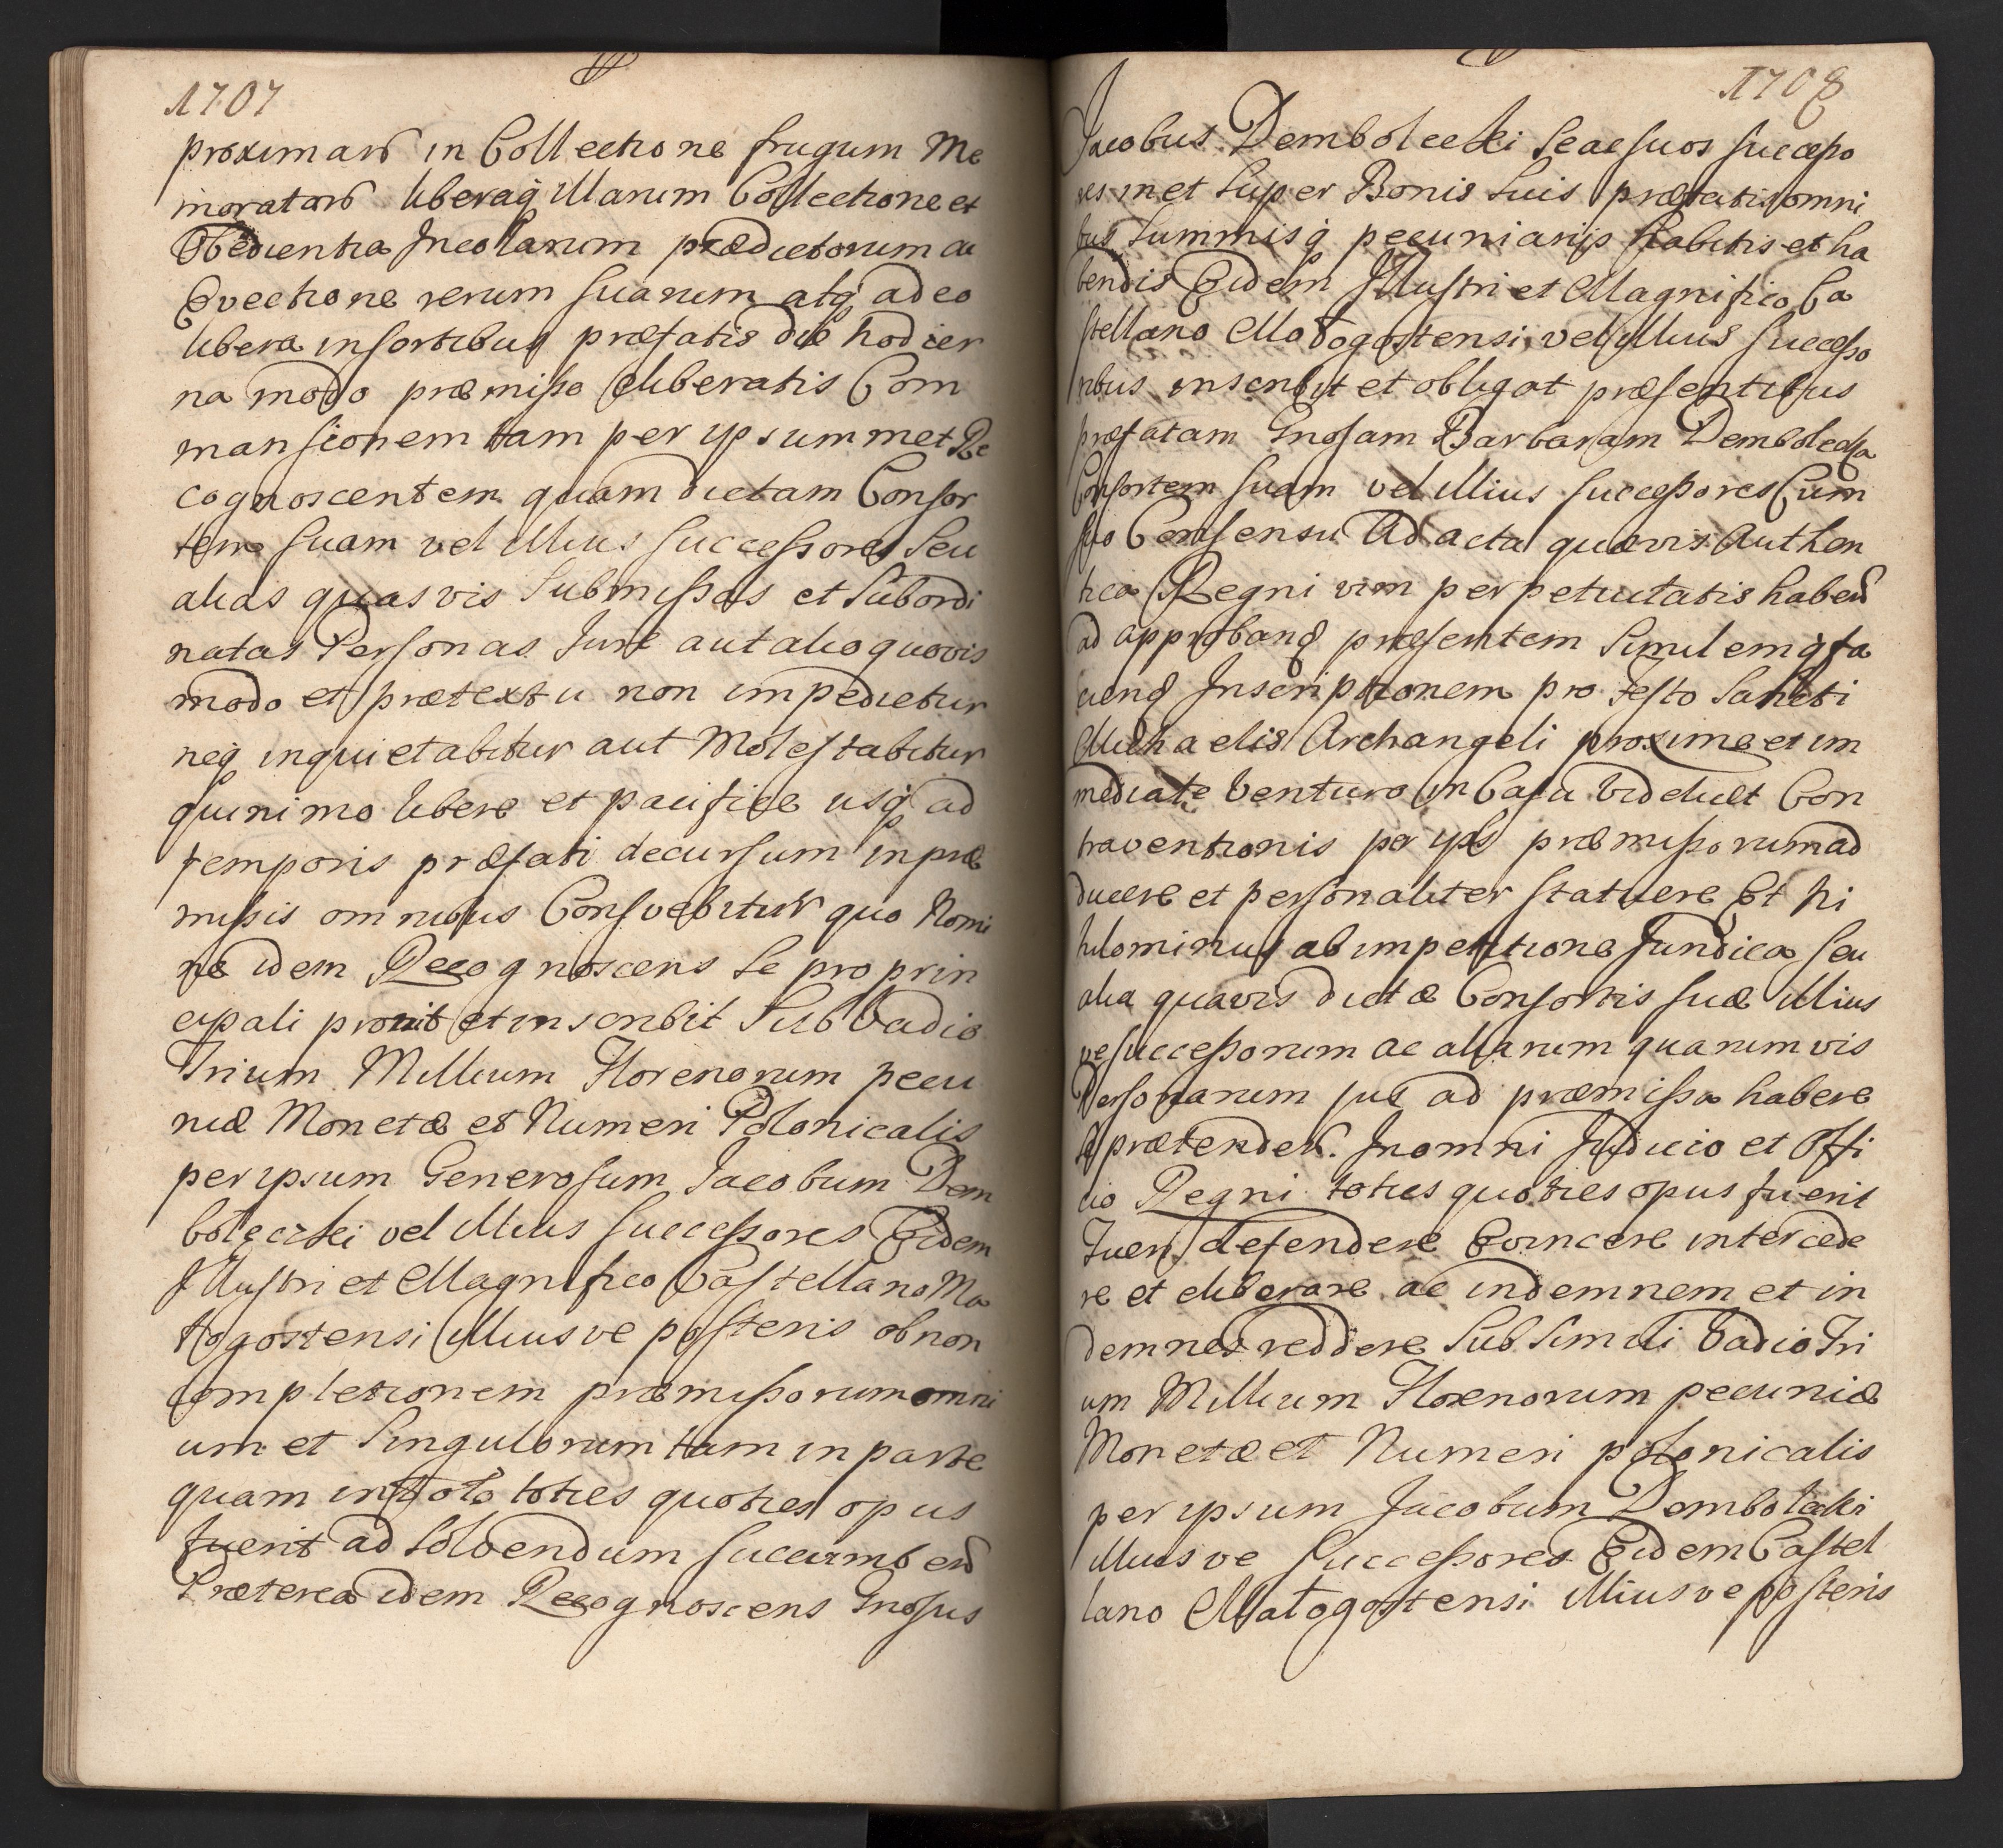 1707
proximarū in Collectione frugum Me
moratarū liberaq̨ illarum Collectione et
Obedientia Incolarum prædictorum ac
Evectione rerum suarum atq̨ adeo
libera in sortibus præfatis die hodier
na modo præmisso eliberatis Com
mansionem tam per ipsummet Re
cognoscentem quam dictam Consor
tem suam vel illius successores seu
alias quasvis Submissas et Subordi
natas Personas Jure aut alio quovis
modo et prætextu non impedietur
neq̨ inquietabitur aut Molestabitur
quinimo libere et pacifice usq̨ ad
temporis præfati decursum in præ
missis omnibus Conservabitur quo Nomi
ne idem Recognoscens se pro prin
cipali ponit et inscribit Sub Vadio
Trium Millium Florenorum pecu
niæ Monetæ et Numeri Polonicalis
per ipsum Generosum Jacobum Dem
bolęcki vel illius successores Eidem
Illustri et Magnifico Castellano Ma
łogostensi illiusve posteris ob non
completionem præmissorum omni
um et Singulorum tam in parte
quam in toto toties quoties opus
fuerit ad solvendum succumbeñ
Præterea idem Recognoscens Gnosus
1708
Jacobus Dembolecki se ac suos successo
resmet super Bonis suis præfatis omni
bus Summisq̨ pecuniarijs habitis et ha
bendis Eidem Illustri et Magnifico Ca
stellano Małogostensi vel illius successo
ribus inscribit et obligat præsentibus
præfatam Gnosam Barbaram Dembolecka
Consortem suam vel illius successores Cum
suo Consensu Ad acta quævis Authen
tica Regni vim perpetuitatis habeñ
ad approband præsentem Similemq̨ fa
ciend Inscriptionem pro festo Sancti
Michaelis Archangeli proxime et im
mediate venturo in Casu videlicet Con
traventionis per ipsos præmissorum ad
ducere et personaliter statuere Et ni
hilominus ab impetitione Juridica seu
alia quavis dictæ Consortis suæ illius
ve successorum ac aliarum quarumvis
Personarum jus ad præmissa habere
se prætendeñ. In omni Judicio et Offi
cio Regni toties quoties opus fuerit
Tueri defendere Evincere intercede
re et eliberare ac indemnem et in
demnes reddere Sub simili Vadio Tri
um Millium Florenorum pecuniæ
Monetæ et Numeri polonicalis
per ipsum Jacobum Dembolecki
illiusve successores Eidem Castel
lano Małogostensi illiusve posteris